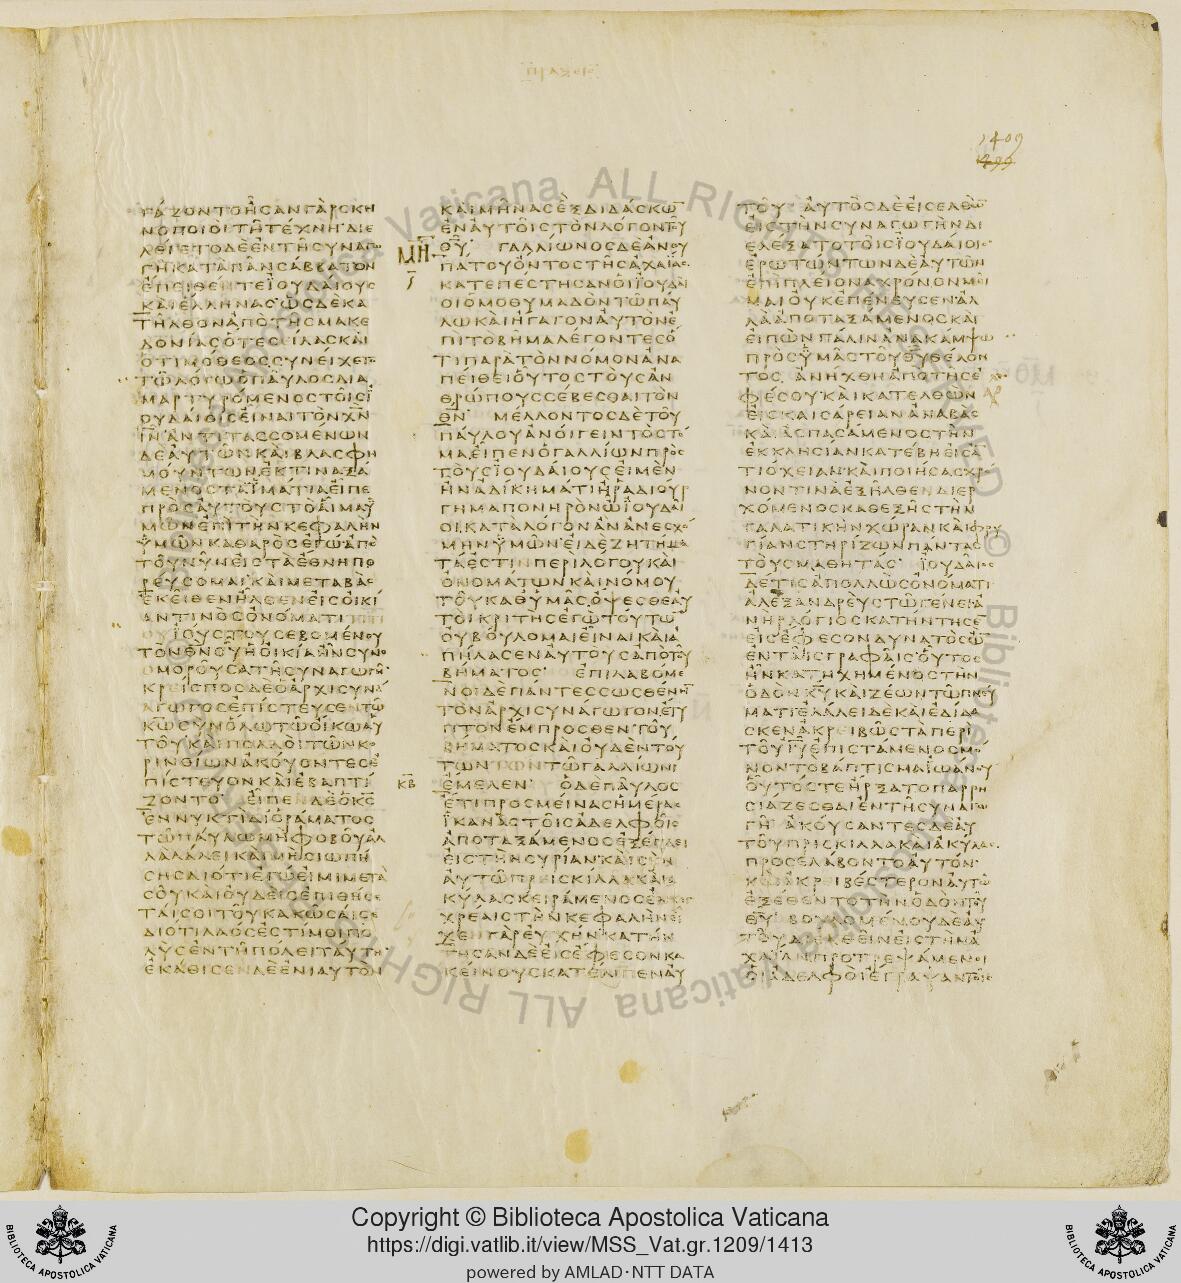 ΠΡΑΞΕΙΣ
1409
1499
ΓΑΖΟΝΤΟ ΗΣΑΝ ΓΑΡ ΣΚΗ
ΝΟΠΟΙΟΙ ΤΗ ΤΕΧΝΗ ΔΙΕ
ΛΕΓΕΤΟ ΔΕ ΕΝ ΤΗ ΣΥΝΑΓΩ
ΓΗ ΚΑΤΑ ΠΑΝ ΣΑΒΒΑΤΟΝ
ΕΠΕΙΘΕΝ ΤΕ ΙΟΥΔΑΙΟΥΣ
ΚΑΙ ΕΛΛΗΝΑΣ ΩΣ ΔΕ ΚΑ
ΤΗΛΘΟΝ ΑΠΟ ΤΗΣ ΜΑΚΕ
ΔΟΝΙΑΣ Ο ΤΕ ΣΕΙΛΑΣ ΚΑΙ
Ο ΤΙΜΟΘΕΟΣ ΣΥΝΕΙΧΕΤΟ
ΤΩ ΛΟΓΩ Ο ΠΑΥΛΟΣ ΔΙΑ
ΜΑΡΤΥΡΟΜΕΝΟΣ ΤΟΙΣ Ι
ΟΥΔΑΙΟΙΣ ΕΙΝΑΙ ΤΟΝ ΧΝ
ΙΝ ΑΝΤΙΤΑΣΣΟΜΕΝΩΝ
ΔΕ ΑΥΤΩΝ ΚΑΙ ΒΛΑΣΦΗ
ΜΟΥΝΤΩΝ ΕΚΤΙΝΑΞΑ
ΜΕΝΟΣ ΤΑ ΙΜΑΤΙΑ ΕΙΠΕ
ΠΡΟΣ ΑΥΤΟΥΣ ΤΟ ΑΙΜΑ Υ
ΜΩΝ ΕΠΙ ΤΗΝ ΚΕΦΑΛΗΝ
ΥΜΩΝ ΚΑΘΑΡΟΣ ΕΓΩ ΑΠΟ
ΤΟΥ ΝΥΝ ΕΙΣ ΤΑ ΕΘΝΗ ΠΟ
ΡΕΥΣΟΜΑΙ ΚΑΙ ΜΕΤΑΒΑΣ
ΕΚΕΙΘΕΝ ΗΛΘΕΝ ΕΙΣ ΟΙΚΙ
ΑΝ ΤΙΝΟΣ ΟΝΟΜΑΤΙ ΤΙΤΙ
ΟΥ ΙΟΥΣΤΟΥ ΣΕΒΟΜΕΝΟΥ
ΤΟΝ ΘΝ ΟΥ Η ΟΙΚΙΑ ΗΝ ΣΥΝΟ
ΜΟΡΟΥΣΑ ΤΗ ΣΥΝΑΓΩΓΗ
ΚΡΕΙΣΠΟΣ ΔΕ Ο ΑΡΧΙΣΥΝΑ
ΓΩΓΟΣ ΕΠΙΣΤΕΥΣΕΝ ΤΩ
ΚΩ ΣΥΝ ΟΛΩ ΤΩ ΟΙΚΩ ΑΥ
ΤΟΥ ΚΑΙ ΠΟΛΛΟΙ ΤΩΝ ΚΟ
ΡΙΝΘΙΩΝ ΑΚΟΥΟΝΤΕΣ Ε
ΠΙΣΤΕΥΟΝ ΚΑΙ ΕΒΑΠΤΙ
ΖΟΝΤΟ ΕΙΠΕΝ ΔΕ Ο ΚΣ
ΕΝ ΝΥΚΤΙ ΔΙ ΟΡΑΜΑΤΟΣ
ΤΩ ΠΑΥΛΩ ΜΗ ΦΟΒΟΥ ΑΛ
ΛΑ ΛΑΛΕΙ ΚΑΙ ΜΗ ΣΙΩΠΗ
ΣΗΣ ΔΙΟΤΙ ΕΓΩ ΕΙΜΙ ΜΕΤΑ
ΣΟΥ ΚΑΙ ΟΥΔΕΙΣ ΕΠΙΘΗΣΕ
ΤΑΙ ΣΟΙ ΤΟΥ ΚΑΚΩΣΑΙ ΣΕ
ΔΙΟΤΙ ΛΑΟΣ ΕΣΤΙ ΜΟΙ ΠΟ
ΛΥΣ ΕΝ ΤΗ ΠΟΛΕΙ ΤΑΥΤΗ
ΕΚΑΘΙΣΕΝ ΔΕ ΕΝΙΑΥΤΟΝ
ΚΑΙ ΜΗΝΑΣ ΕΞ ΔΙΔΑΣΚΩ
ΕΝ ΑΥΤΟΙΣ ΤΟΝ ΛΟΓΟΝ ΤΟΥ
ΜΗ
ΘΥ ΓΑΛΛΙΩΝΟΣ ΔΕ ΑΝΘΥ
ΠΑΤΟΥ ΟΝΤΟΣ ΤΗΣ ΑΧΑΙΑΣ
ΚΑΤΕΠΕΣΤΗΣΑΝ ΟΙ ΙΟΥΔΑΙ
ΟΙ ΟΜΟΘΥΜΑΔΟΝ ΤΩ ΠΑΥ
ΛΩ ΚΑΙ ΗΓΑΓΟΝ ΑΥΤΟΝ Ε
ΠΙ ΤΟ ΒΗΜΑ ΛΕΓΟΝΤΕΣ Ο
ΤΙ ΠΑΡΑ ΤΟΝ ΝΟΜΟΝ ΑΝΑ
ΠΕΙΘΕΙ ΟΥΤΟΣ ΤΟΥΣ ΑΝ
ΘΡΩΠΟΥΣ ΣΕΒΕΣΘΑΙ ΤΟΝ
ΘΝ ΜΕΛΛΟΝΤΟΣ ΔΕ ΤΟΥ
ΠΑΥΛΟΥ ΑΝΟΙΓΕΙΝ ΤΟ ΣΤΟ
ΜΑ ΕΙΠΕΝ Ο ΓΑΛΛΙΩΝ ΠΡΟΣ
ΤΟΥΣ ΙΟΥΔΑΙΟΥΣ ΕΙ ΜΕΝ
ΗΝ ΑΔΙΚΗΜΑ ΤΙ Η ΡΑΔΙΟΥΡ
ΓΗΜΑ ΠΟΝΗΡΟΝ Ω ΙΟΥΔΑΙ
ΟΙ ΚΑΤΑ ΛΟΓΟΝ ΑΝ ΑΝΕΣΧΟ
ΜΗΝ ΥΜΩΝ ΕΙ ΔΕ ΖΗΤΗΜΑ
ΤΑ ΕΣΤΙΝ ΠΕΡΙ ΛΟΓΟΥ ΚΑΙ
ΟΝΟΜΑΤΩΝ ΚΑΙ ΝΟΜΟΥ
ΤΟΥ ΚΑΘ ΥΜΑΣ ΟΨΕΣΘΕ ΑΥ
ΤΟΙ ΚΡΙΤΗΣ ΕΓΩ ΤΟΥΤΩ
ΟΥ ΒΟΥΛΟΜΑΙ ΕΙΝΑΙ ΚΑΙ Α
ΠΗΛΑΣΕΝ ΑΥΤΟΥΣ ΑΠΟ ΤΟΥ
ΒΗΜΑΤΟΣ ΕΠΙΛΑΒΟΜΕ
ΝΟΙ ΔΕ ΠΑΝΤΕΣ ΣΩΣΘΕΝΗ
ΤΟΝ ΑΡΧΙΣΥΝΑΓΩΓΟΝ ΕΤΥ
ΠΤΟΝ ΕΜΠΡΟΣΘΕΝ ΤΟΥ
ΒΗΜΑΤΟΣ ΚΑΙ ΟΥΔΕΝ ΤΟΥ
ΤΩΝ ΤΩ ΓΑΛΛΙΩΝΙ
ΚΒ
ΕΜΕΛΕΝ Ο ΔΕ ΠΑΥΛΟΣ
ΕΤΙ ΠΡΟΣΜΕΙΝΑΣ ΗΜΕΡΑΣ
ΙΚΑΝΑΣ ΤΟΙΣ ΑΔΕΛΦΟΙΣ
ΑΠΟΤΑΞΑΜΕΝΟΣ ΕΞΕΠΛΕΙ
ΕΙΣ ΤΗΝ ΣΥΡΙΑΝ ΚΑΙ ΣΥΝ
ΑΥΤΩ ΠΡΕΙΣΚΙΛΛΑ ΚΑΙ Α
ΚΥΛΑΣ ΚΕΙΡΑΜΕΝΟΣ ΕΝ ΚΕΝ
ΧΡΕΑΙΣ ΤΗΝ ΚΕΦΑΛΗΝ ΕΙ
ΧΕΝ ΓΑΡ ΕΥΧΗΝ ΚΑΤΗΝ
ΤΗΣΑΝ ΔΕ ΕΙΣ ΕΦΕΣΟΝ ΚΑ
ΚΕΙΝΟΥΣ ΚΑΤΕΛΙΠΕΝ ΑΥ
ΤΟΥ ΑΥΤΟΣ ΔΕ ΕΙΣΕΛΘΩ
ΕΙΣ ΤΗΝ ΣΥΝΑΓΩΓΗΝ ΔΙ
ΕΛΕΞΑΤΟ ΤΟΙΣ ΙΟΥΔΑΙΟΙΣ
ΕΡΩΤΩΝΤΩΝ ΔΕ ΑΥΤΩΝ
ΕΠΙ ΠΛΕΙΟΝΑ ΧΡΟΝΟΝ ΜΕΙ
ΝΑΙ ΟΥΚ ΕΠΕΝΕΥΣΕΝ ΑΛ
ΛΑ ΑΠΟΤΑΞΑΜΕΝΟΣ ΚΑΙ
ΕΙΠΩΝ ΠΑΛΙΝ ΑΝΑΚΑΜΨΩ
ΠΡΟΣ ΥΜΑΣ ΤΟΥ ΘΥ ΘΕΛΟΝ
ΤΟΣ ΑΝΗΧΘΗ ΑΠΟ ΤΗΣ Ε
ΦΕΣΟΥ ΚΑΙ ΚΑΤΕΛΘΩΝ
ΕΙΣ ΚΑΙΣΑΡΕΙΑΝ ΑΝΑΒΑΣ
ΚΑΙ ΑΣΠΑΣΑΜΕΝΟΣ ΤΗΝ
ΕΚΚΛΗΣΙΑΝ ΚΑΤΕΒΗ ΕΙΣ Α
ΤΙΟΧΕΙΑΝ ΚΑΙ ΠΟΙΗΣΑΣ ΧΡΟ
ΝΟΝ ΤΙΝΑ ΕΞΗΛΘΕΝ ΔΙΕΡ
ΧΟΜΕΝΟΣ ΚΑΘΕΞΗΣ ΤΗΝ
ΓΑΛΑΤΙΚΗΝ ΧΩΡΑΝ ΚΑΙ ΦΡΥ
ΓΙΑΝ ΣΤΗΡΙΖΩΝ ΠΑΝΤΑΣ
ΤΟΥΣ ΜΑΘΗΤΑΣ ΙΟΥΔΑΙΟΣ
ΔΕ ΤΙΣ ΑΠΟΛΛΩΣ ΟΝΟΜΑΤΙ
ΑΛΕΞΑΝΔΡΕΥΣ ΤΩ ΓΕΝΕΙ Α
ΝΗΡ ΛΟΓΙΟΣ ΚΑΤΗΝΤΗΣΕ
ΕΙΣ ΕΦΕΣΟΝ ΔΥΝΑΤΟΣ Ω
ΕΝ ΤΑΙΣ ΓΡΑΦΑΙΣ ΟΥΤΟΣ
ΗΝ ΚΑΤΗΧΗΜΕΝΟΣ ΤΗΝ
ΟΔΟΝ ΚΥ ΚΑΙ ΖΕΩΝ ΤΩ ΠΝΕΥ
ΜΑΤΙ ΕΛΑΛΕΙ ΔΕ ΚΑΙ ΕΔΙΔΑ
ΣΚΕΝ ΑΚΡΕΙΒΩΣ ΤΑ ΠΕΡΙ
ΤΟΥ ΙΥ ΕΠΙΣΤΑΜΕΝΟΣ ΜΟ
ΝΟΝ ΤΟ ΒΑΠΤΙΣΜΑ ΙΩΑΝΟΥ
ΟΥΤΟΣ ΤΕ ΗΡΞΑΤΟ ΠΑΡΡΗ
ΣΙΑΖΕΣΘΑΙ ΕΝ ΤΗ ΣΥΝΑΓΩ
ΓΗ ΑΚΟΥΣΑΝΤΕΣ ΔΕ ΑΥ
ΤΟΥ ΠΡΙΣΚΙΛΛΑ ΚΑΙ ΑΚΥΛΑΣ
ΠΡΟΣΕΛΑΒΟΝΤΟ ΑΥΤΟΝ
ΚΑΙ ΑΚΡΕΙΒΕΣΤΕΡΟΝ ΑΥΤΩ
ΕΞΕΘΕΝΤΟ ΤΗΝ ΟΔΟΝ ΤΟΥ
ΘΥ ΒΟΥΛΟΜΕΝΟΥ ΔΕ ΑΥ
ΤΟΥ ΔΙΕΛΘΕΙΝ ΕΙΣ ΤΗΝ Α
ΧΑΙΑΝ ΠΡΟΤΡΕΨΑΜΕΝΟΙ
ΟΙ ΑΔΕΛΦΟΙ ΕΓΡΑΨΑΝ ΤΟΙΣ
Copyright © Biblioteca Apostolica Vaticana
https://digi.vatlib.it/view/MSS_Vat.gr.1209/1413
powered by AMLAD·NTT DATA
BIBLIOTECA APOSTOLICA VATICANA
BIBLIOTECA APOSTOLICA VATICANA